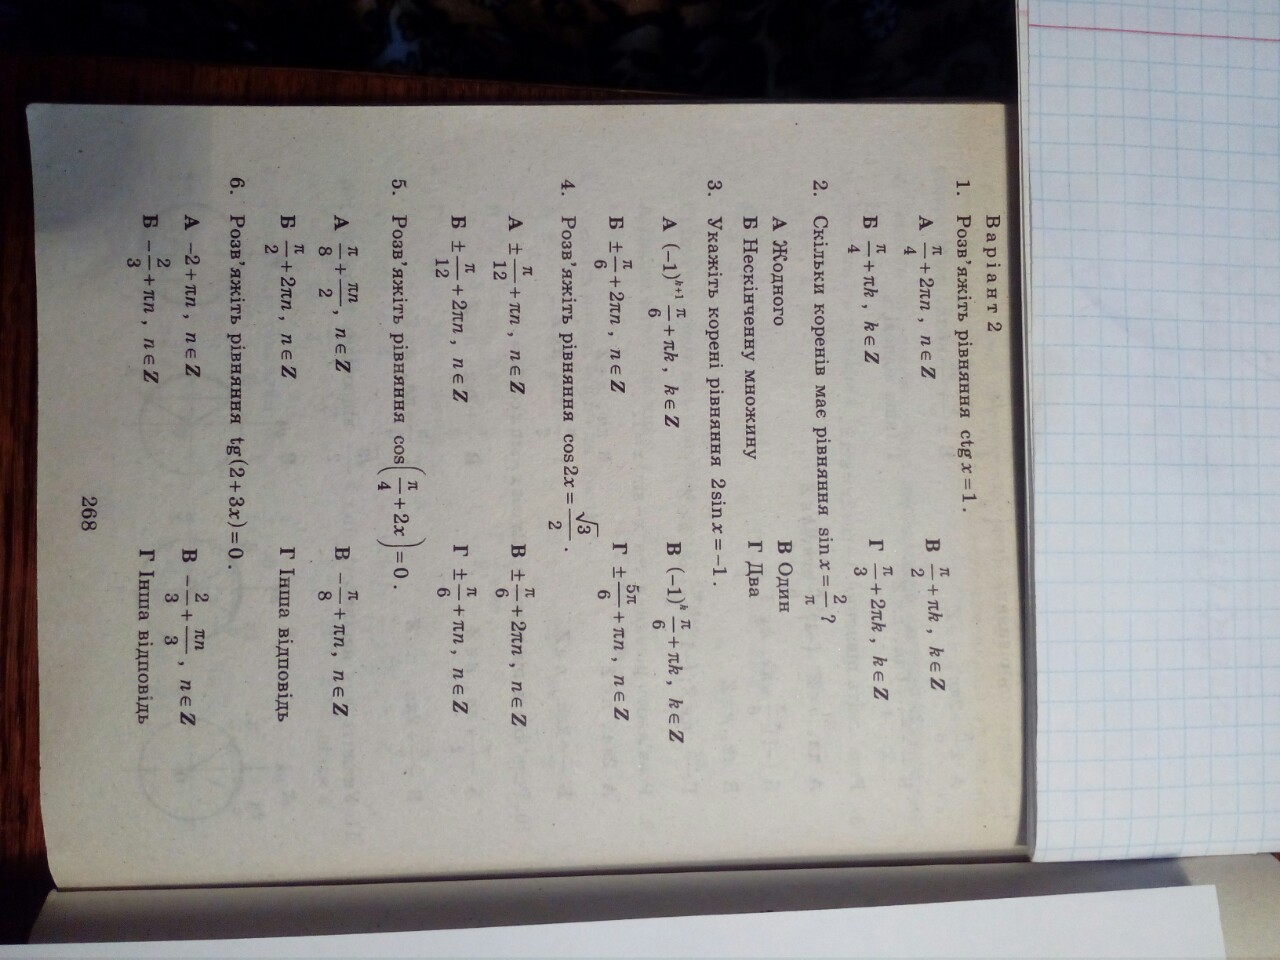 Варіант 2
1. Розв'яжіть рівняння ctg x = 1.
А π/4 + 2πn, n ∈ Z В π/2 + πk, k ∈ Z
Б π/4 + πk, k ∈ Z Г π/3 + 2πk, k ∈ Z
2. Скільки коренів має рівняння sin x = 2/π?
А Жодного В Один
Б Нескінченну множину Г Два
3. Укажіть корені рівняння 2sin x = −1.
А (−1)^(k+1) π/6 + πk, k ∈ Z В (−1)^k π/6 + πk, k ∈ Z
Б ± π/6 + 2πn, n ∈ Z Г ± 5π/6 + πn, n ∈ Z
4. Розв'яжіть рівняння cos 2x = √3/2.
А ± π/12 + πn, n ∈ Z В ± π/6 + 2πn, n ∈ Z
Б ± π/12 + 2πn, n ∈ Z Г ± π/6 + πn, n ∈ Z
5. Розв'яжіть рівняння cos(π/4 + 2x) = 0.
А π/8 + πn/2, n ∈ Z В − π/8 + πn, n ∈ Z
Б π/2 + 2πn, n ∈ Z Г Інша відповідь
6. Розв'яжіть рівняння tg(2 + 3x) = 0.
А −2 + πn, n ∈ Z В − 2/3 + πn/3, n ∈ Z
Б − 2/3 + πn, n ∈ Z Г Інша відповідь
268